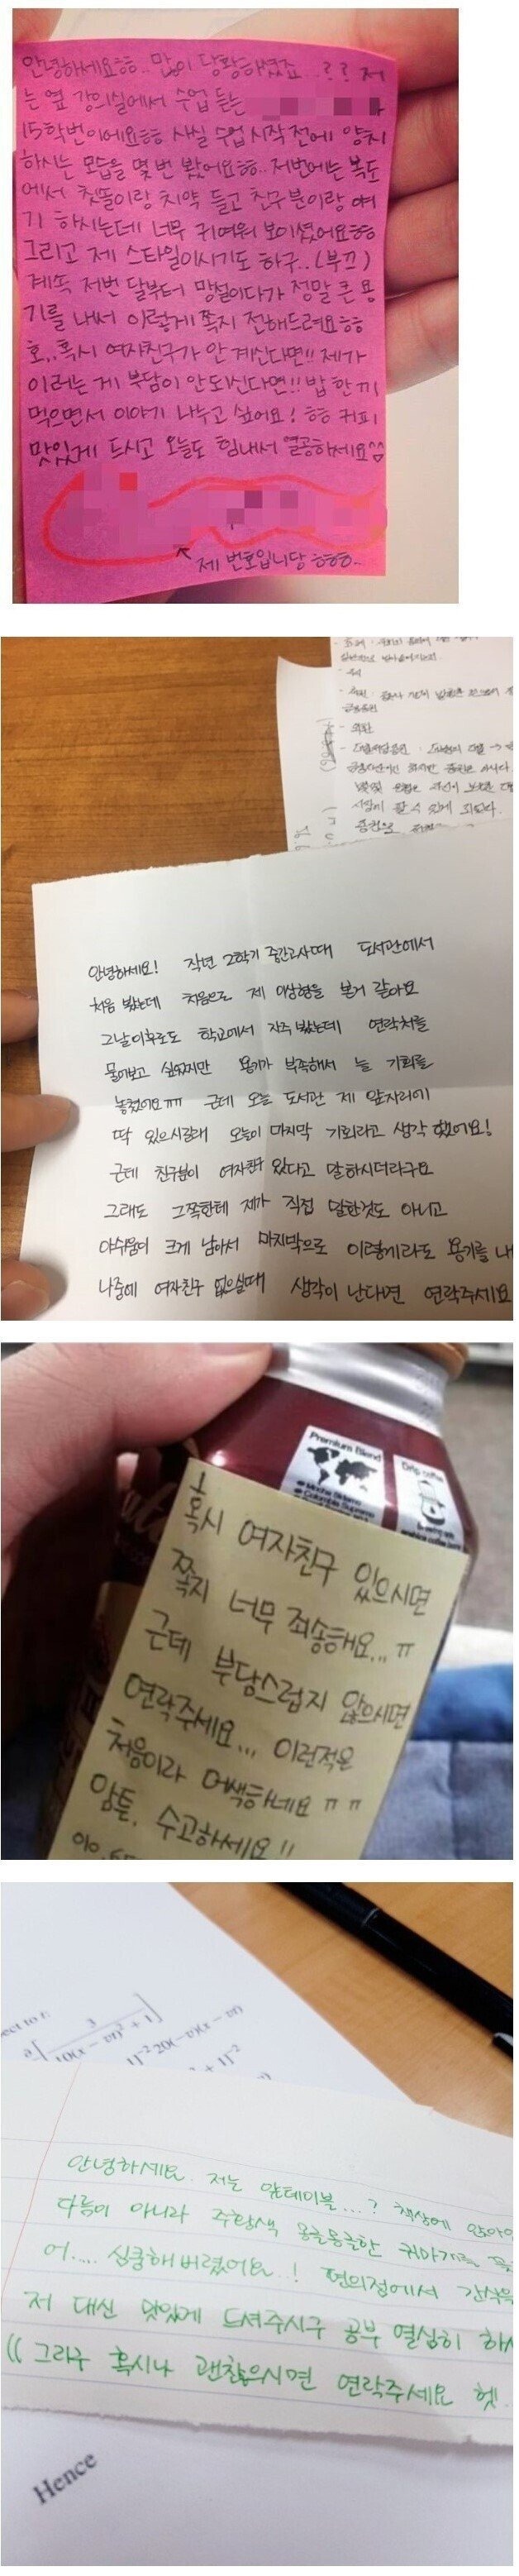 안녕하세요ㅎㅎ.. 많이 당황하셨죠..?? 저
는 옆 강의실에서 수업 듣는
15학번이에요ㅎㅎ 사실 수업 시작 전에 양치
하시는 모습을 몇 번 봤어요ㅎㅎ.. 저번에는 복도
에서 칫똘이랑 치약 들고 친구분이랑 얘
기 하시는데 너무 귀여워 보이셨어요ㅎㅎ
그리고 제 스타일이시기도 하구..(부끄)
계속 저번 달부터 망설이다가 정말 큰 용
기를 내서 이렇게 쪽지 전해드려요ㅎㅎ
호,,혹시 여자친구가 안 계신다면!! 제가
이러는 게 부담이 안되신다면!! 밥 한끼
먹으면서 이야기 나누고 싶어요! ㅎㅎ 커피
맛있게 드시고 오늘도 힘내서 열공하세요^^
제 번호입니당 ㅎㅎㅎ..
안녕하세요! 작년 2학기 중간고사때 도서관에서
처음 봤는데 처음으로 제 이상형을 본거 같아요
그날이후로도 학교에서 자주 봤는데 연락처를
물어보고 싶었지만 용기가 부족해서 늘 기회를
놓쳤어요ㅠㅠ 근데 오늘 도서관 제 앞자리에
딱 있으시길래 오늘이 마지막 기회라고 생각 했어요!
근데 친구분이 여자친구 있다고 말하시더라구요
그래도 그쪽한테 제가 직접 말한것도 아니고
아쉬움이 크게 남아서 마지막으로 이렇게라도 용기를 내
나중에 여자친구 없으실때 생각이 난다면 연락주세요
Premium Blend
Drip coffee
Colombia Supremo
혹시 여자친구 있으시면
쪽지 너무 죄송해요...ㅠ
근데 부담스럽지 않으시면
연락주세요... 이런적은
처음이라 어색하네요 ㅠㅠ
암튼, 수고하세요!!
010.
안녕하세요. 저는 앞테이블...? 책상에 앉아
다름이 아니라 주황색 몽글몽글한 귀마개를
어.... 심쿵해버렸어요..! 편의점에서 간식을
저 대신 맛있게 드셔주시구 공부 열심히 하시
(( 그리구 혹시나 괜찮으시면 연락주세요 헷!
Hence